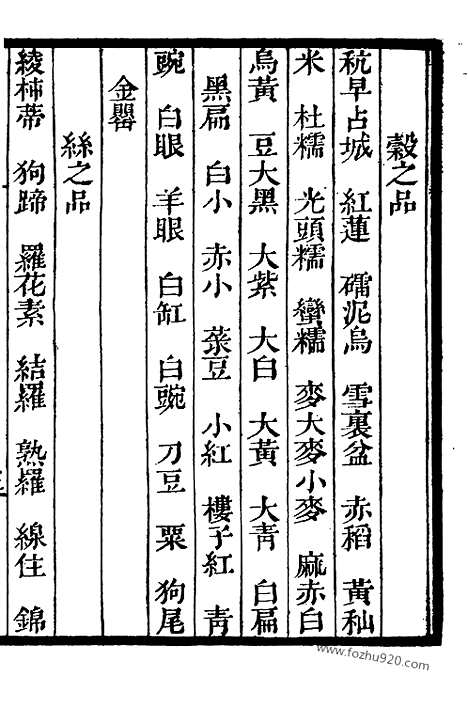 穀之品
秔早占城　紅蓮　礌泥烏　雪裏盆　赤稻　黃籼
米　杜糯　光頭糯　蠻糯　麥大麥小麥　麻赤白
烏黃　豆大黑　大紫　大白　大黃　大青　白扁
黑扁　白小　赤小　菉豆　小紅　樓子紅　青
豌　白眼　羊眼　白缸　白豌　刀豆　粟　狗尾
金罌
絲之品
綾柿蒂　狗蹄　羅花素　結羅　熟羅　線住　錦
www.fozhu920.com